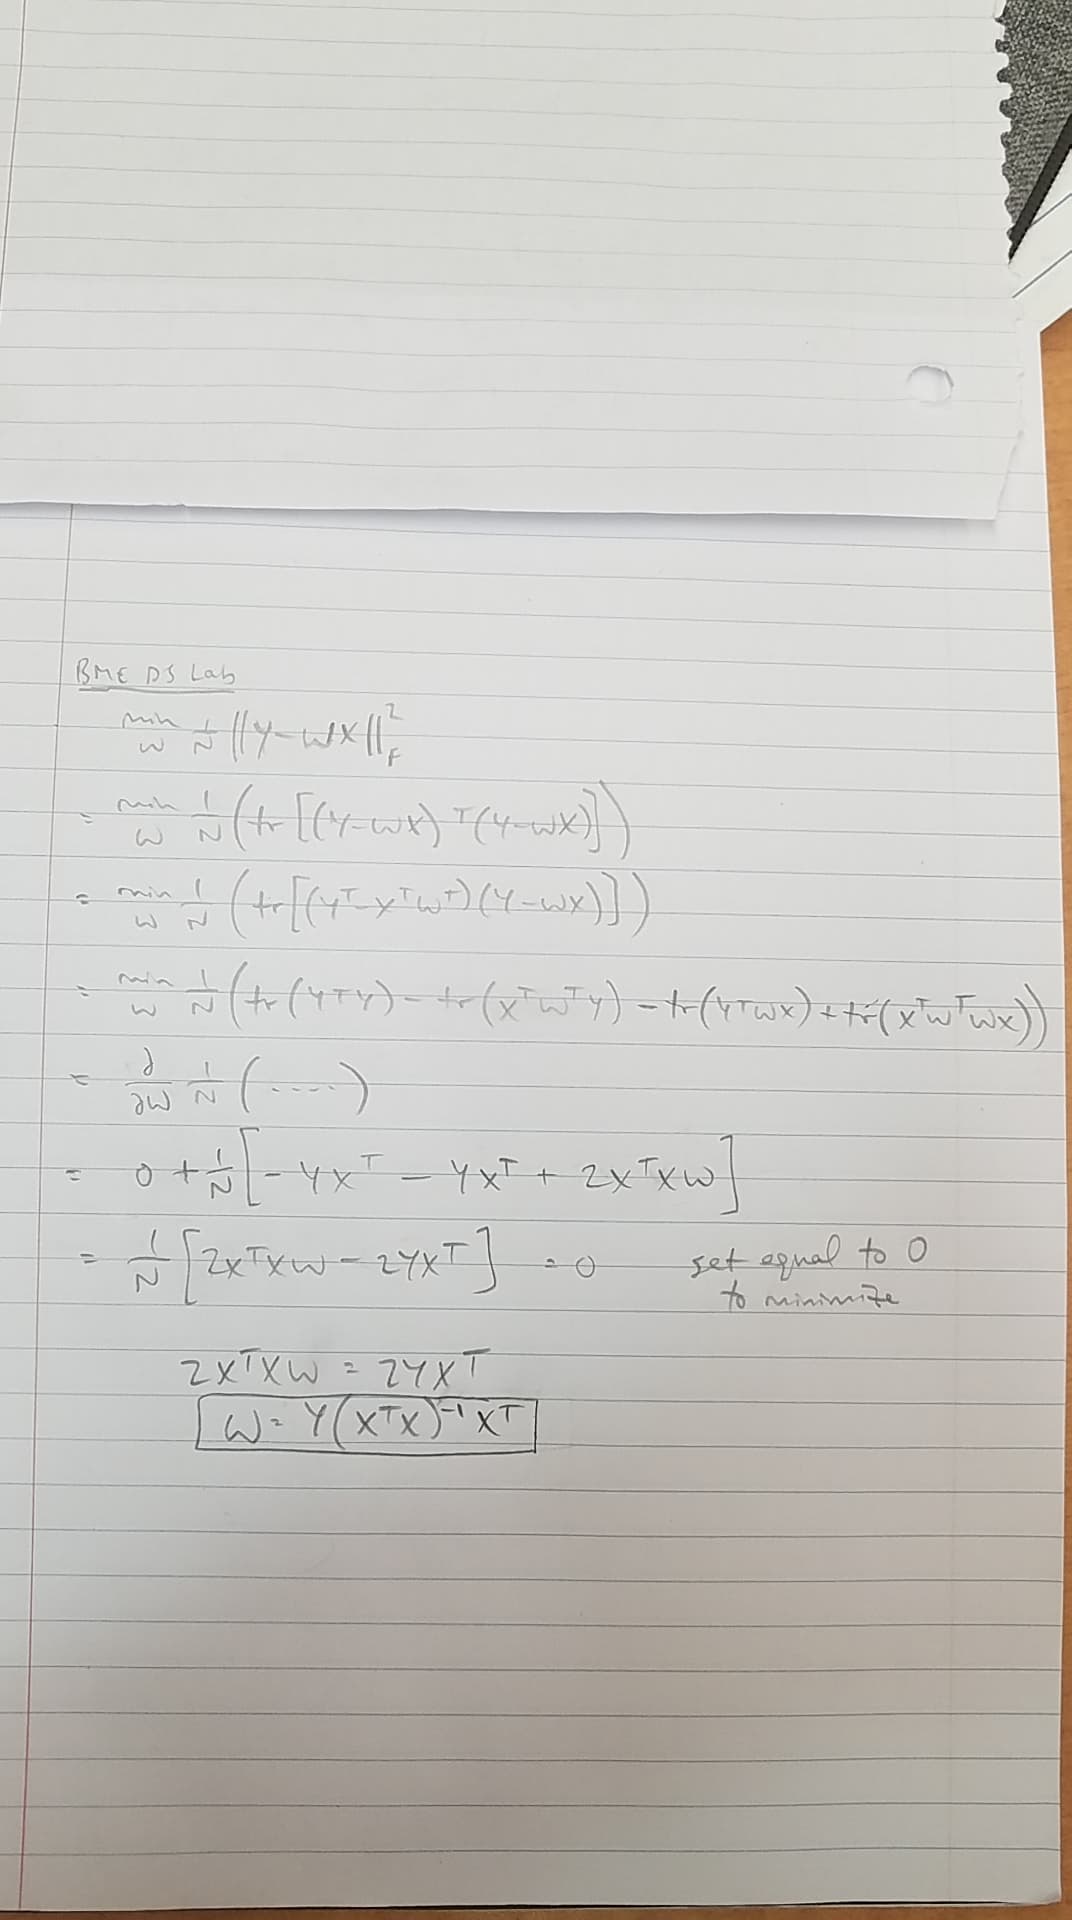 BME DS Lab
min_W 1/N ||Y-WX||_F^2
= min_W 1/N (tr[(Y-WX)^T(Y-WX)])
= min_W 1/N (tr[(Y^T-X^TW^T)(Y-WX)])
= min_W 1/N (tr(Y^TY) - tr(X^TW^TY) - tr(Y^TWX) + tr(X^TW^TWX))
= ∂/∂W 1/N (.....)
= 0 + 1/N [-YX^T - YX^T + 2X^TXW]
= 1/N [2X^TXW - 2YX^T] = 0 set equal to 0
to minimize
2X^TXW = 2YX^T
W = Y(X^TX)^-1 X^T